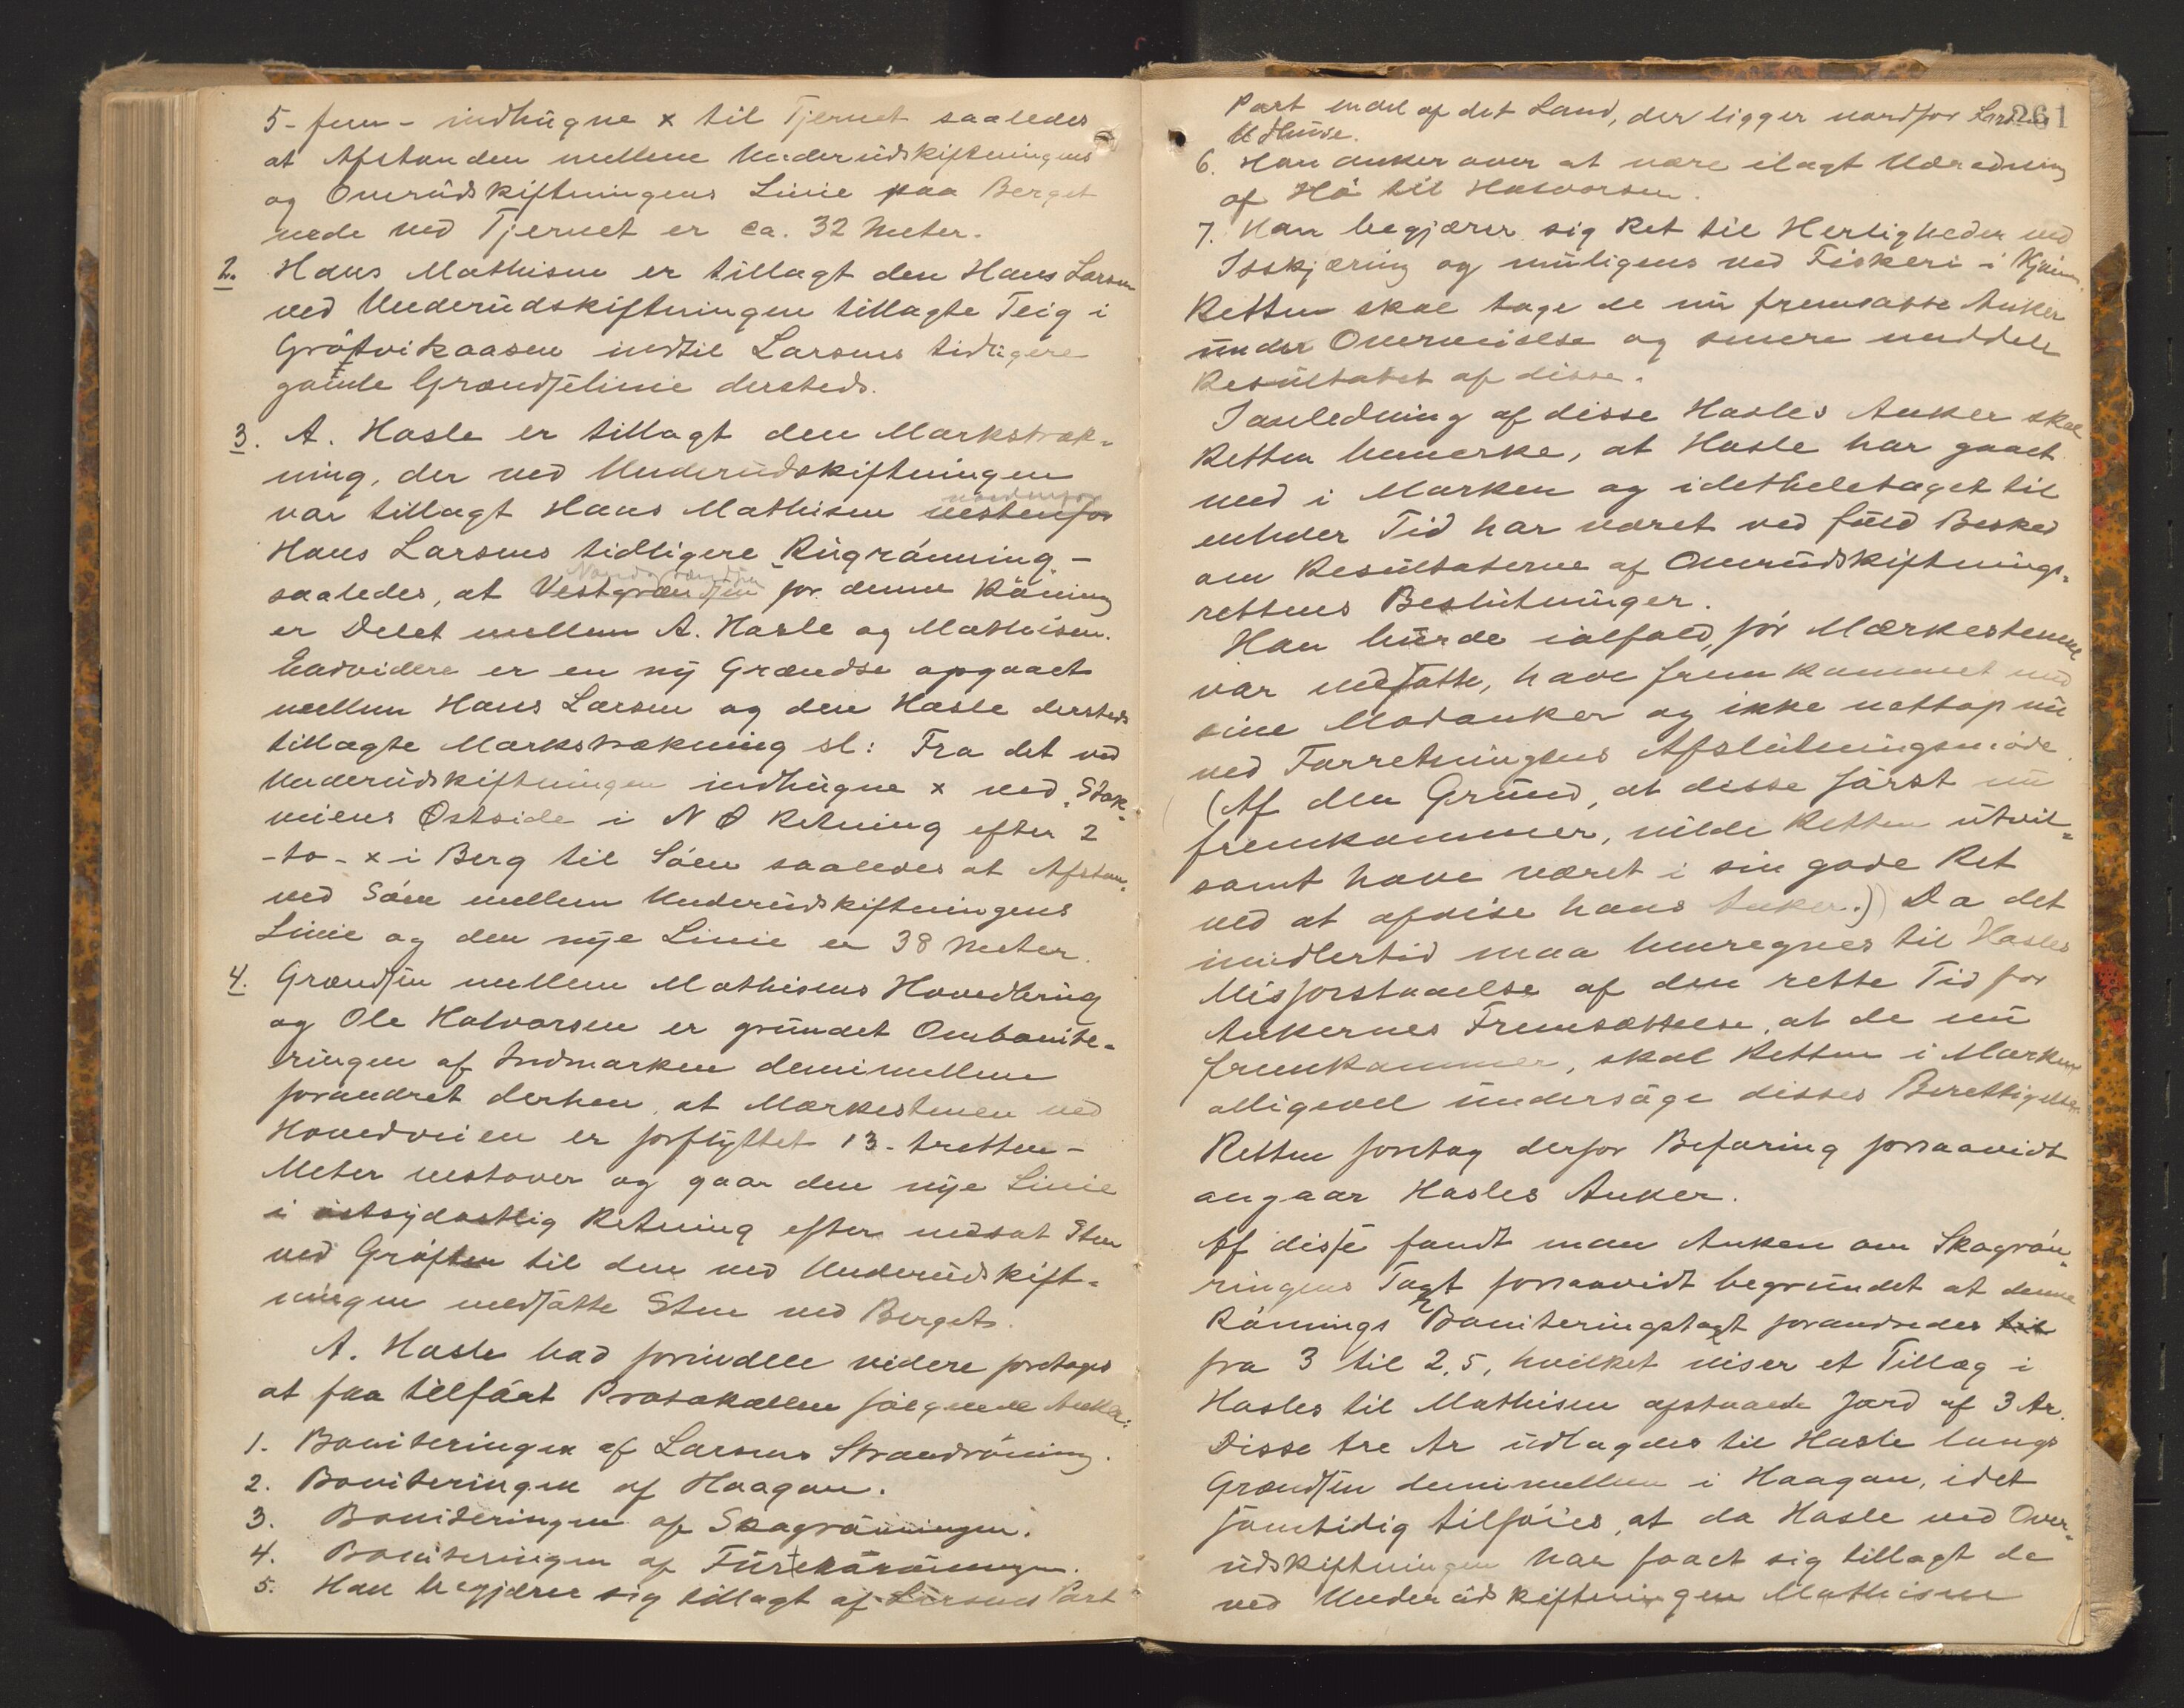 5 - fem - indhugne x til Tjernet saaledes
at Afstanden mellem Underudskiftningens
og Omrudskiftningens Linie paa Berget
nede ved Tjernet er ca. 32 Meter.
2. Hans Mathisen er tillagt den Hans Larsen
ved Underudskiftningen tillagte Teig i
Gröftvikaasen indtil Larsens tidligere
gamle Grændselinie dersteds.
3. A. Hasle er tillagt den Markstræk-
ning, der ved Underudskiftningen
var tillagt Hans Mathisen vestenfor nordenfor
Hans Larsens tidligere Rugrönning -
saaledes, at Vestgrændsen Nordgrændsen for denne Röning
er Delet mellem A. Hasle og Mathisen.
Endvidere er en ny Grændse opgaaet
mellem Hans Larsen og den Hasle dersteds
tillagte Markstrækning sl: Fra det ved
Underudskiftningen indhugne x ved Stok-
veiens Østside i N Ø Retning efter 2
- to - x i Berg til Söen saaledes at Afstan.
ved Söen mellem Underudskiftningens
Linie og den nye Linie er 38 Meter.
4. Grændsen mellem Mathisens Hovedbring
og Ole Halvorsen er grundet Ombonite-
ringen af Indmarken demimellem
forandret derhen, at Mærkestenen ved
Hovedveien er forflyttet 13 - tretten -
Meter vestover og gaar den nye Linie
i östsydostlig Retning efter nedsat Sten
ved Gröften til den ved Underudskift-
ningen nedsatte Sten ved Berget.
A. Hasle bad forinden videre foretages
at faa tilfört Protokollen fölgende Anker:
1. Boniteringen af Larsens Strandröning.
2. Boniteringen af Haagan.
3. Boniteringen af Skogrönningen.
4. Boniteringen af
5. Han begjærer sig tillagt af Larsens Part
261
Part endel af det Land, der ligger nordfor Larsens
Udhuse.
6. Han anker over at være ilagt Udredning
af Hö til Halvorsen.
7. Han begjærer sig Ret til Herligheder ved
Isskjæring og muligens ved Fiskeri i
Retten skal tage de nu fremsatte Anker
under Overveielse og senere meddele
Resultatet af disse.
I anledning af disse Hasles Anker skal
Retten bemerke, at Hasle har gaaet
med i Marken og i detheletaget til
enhver Tid har været ved fuld Besked
om Resultaterne af Omrudskiftnings-
rettens Beslutninger.
Han burde ialfald, för Mærkestenene
var nedsatte, have fremkommet med
sine Modanker og ikke nettop nu
ved Forretningens Afslutningsmöde
(Af den Grund, at disse först nu
fremkommer, vilde Retten utvil-
somt have været i sin gode Ret
ved at afvise hans Anker.) Da det
imidlertid maa henregnes til Hasles
Misforstaaelse af den rette Tid for
Ankernes Fremsættelse, at de nu
fremkommer, skal Retten i Marken
alligevel undersöge disses Berettigelse.
Retten foretog derfor Befaring forsaavidt
angaar Hasles Anker.
Af disse fandt man Anken om Skogrön-
ningens Taxt forsaavidt begrundet at denne
Rönnings Boniteringstaxt forandredes til
fra 3 til 2,5, hvilket viser et Tillæg i
Hasles til Mathisen afstaaede Jord af 3 Ar.
Disse tre Ar udlagdes til Hasle langs
Grændsen demimellem i Haagan, idet
samtidig tilföies, at da Hasle ved Over-
udskiftningen har faaet sig tillagt de
ved Underudskiftningen Mathisen